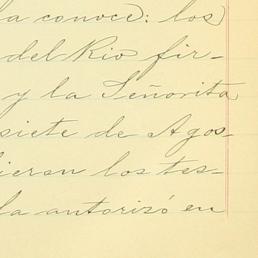 la conoce: los
del Rio fir-
y la Señorita
siete de Agos-
ieron los tes-
la autorizó en